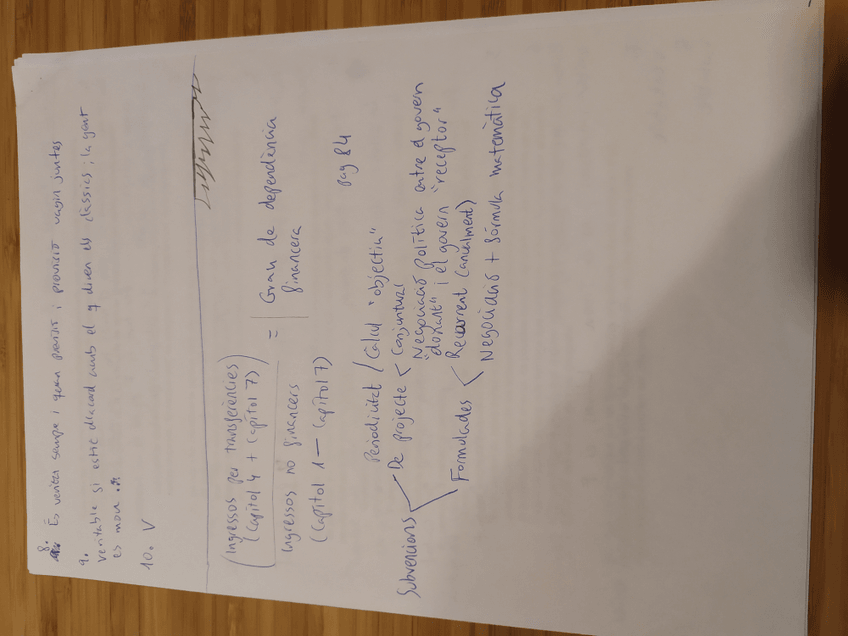 8. És veritat sempre i quan provisió i producció vagin juntes
9.
veritable si estic d'acord amb el q diuen els clàssics; la gent
es mou.
10. V
Ingressos per transferències
(Capítol 4 + Capítol 7)
Ingressos no financers
(Capítol 1 — Capítol 7)
= Grau de dependència
financera
pag 84
Periodicitat / Càlcul "objectiu"
Subvencions
De projecte < Conjuntural
Negociació política entre el govern
"donant" i el govern "receptor"
Formulades < Recurrent (anualment)
Negociació + fórmula matemàtica